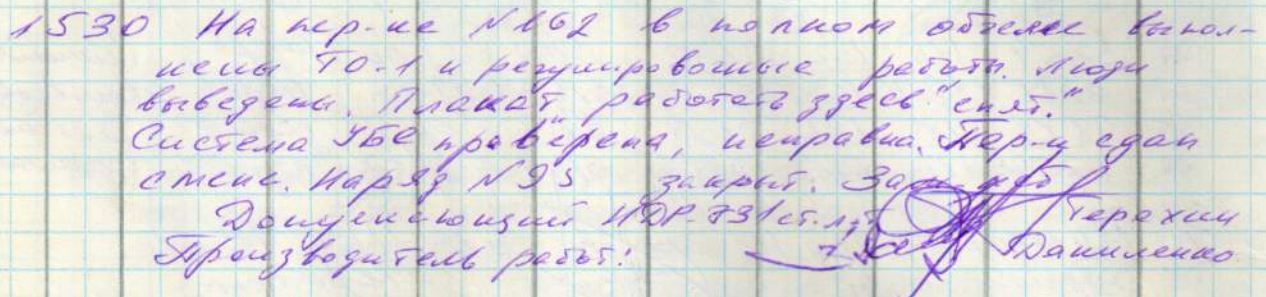 1530 На пер-ке №162 в полном объеме выпол-
нены ТО-1 и регулировочные работы. Люди
выведены. Плакат "работать здесь" снят.
Система УБС проверена, исправна. Пер-к сдан
смене. Наряд №95 закрыт.
Допускающий НДР-731 ст. л-т Терехин
Производитель работ: Даниленко